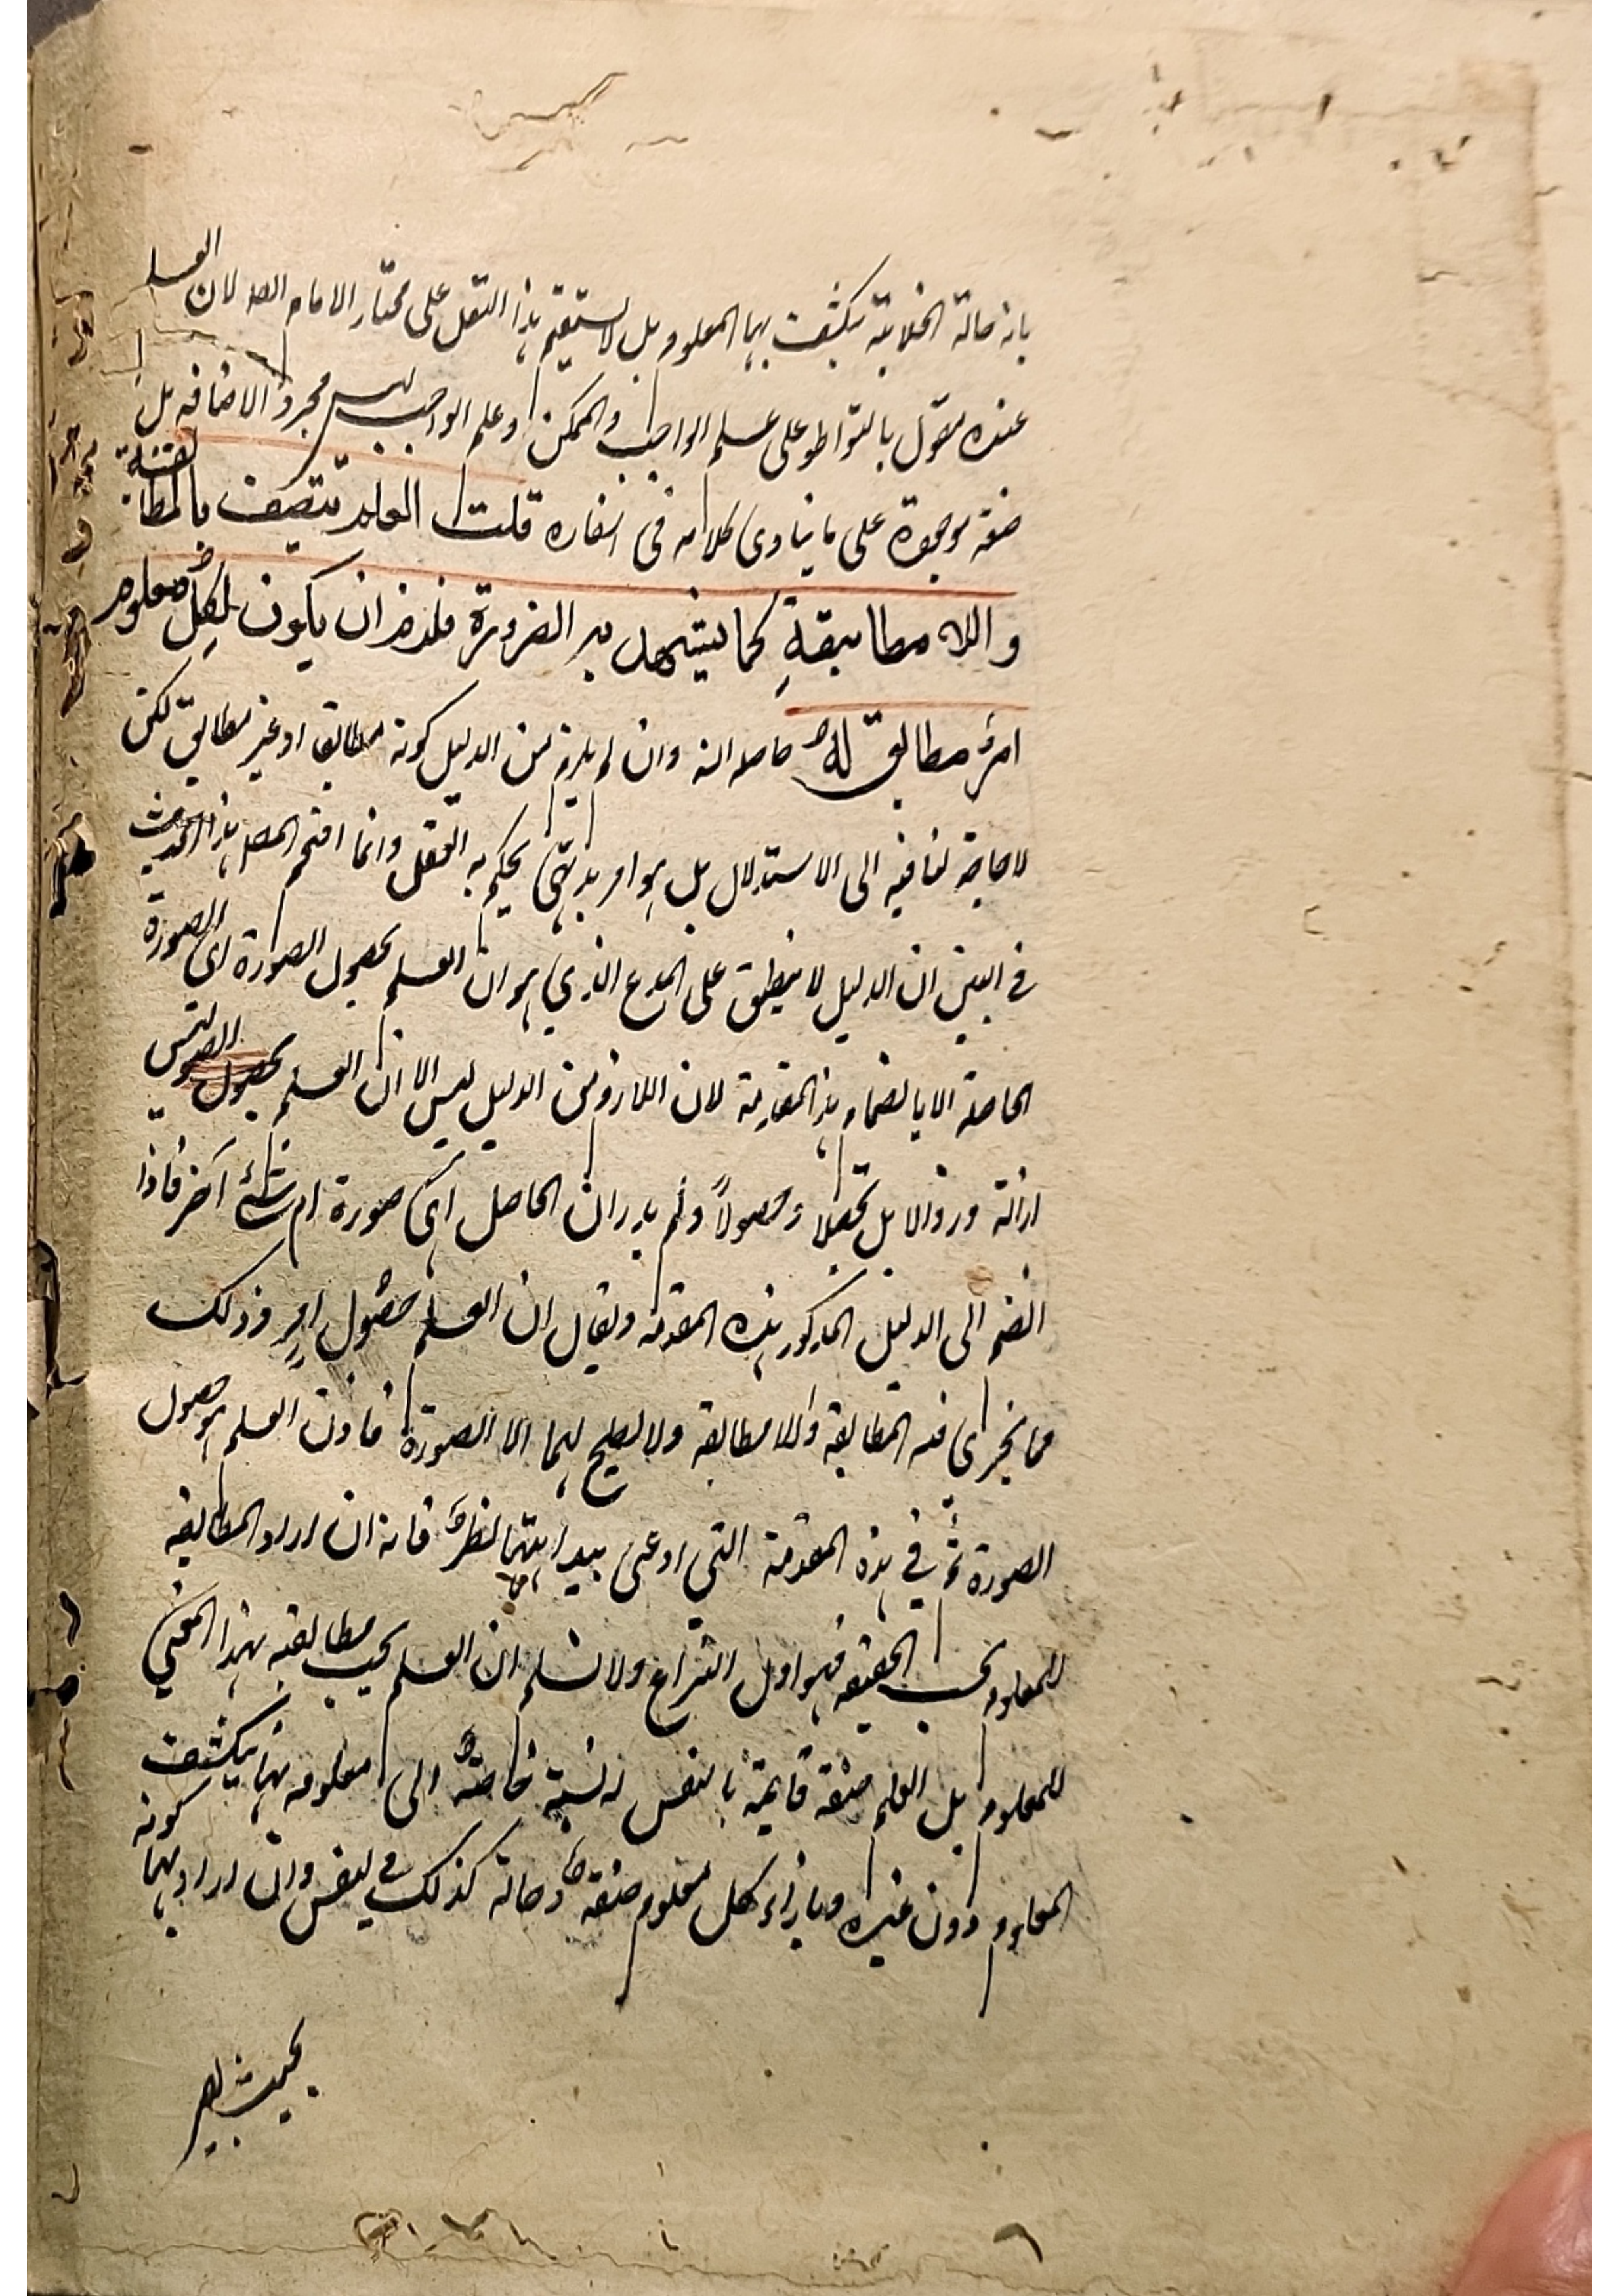 بانه حالة انجلائية ينكشف بها المعلوم بل لا يستقيم هذا النقل على مختار الامام المص لان العلم
عنده مقول بالتواطو على علم الواجب والممكن وعلم الواجب ليس مجرد الاضافه بل
صفة موجودة على ما ينادى كلامه فى اسفاره قلت العلم يتصف بالمطابقة
واللا مطابقةِ كما يشهد به الضرورة فلا بد ان يكون لكل معلوم
امرٌ مطابق له حاصله انه وان لم يلزم من الدليل كونه مطابقا او غير مطابق لكن
لا حاجة لنا فيه الى الاستدلال بل هو امر بديهى يحكم به العقل وانما اقحم المص هذا الحديث
فى البين ان الدليل لا ينطبق على المدع الذي هو ان العلم بحصول الصورة اى الصورة
الحاصلة الا بانضمام هذ المقدمة لان اللازم من الدليل ليس الا ان العلم بحصول ليس
ازالة وزوالا بل تحصلا وحصولاً ولم يدر ان الحاصل اهى صورة ام شئ آخر فاذا
انضم الى الدليل المذكور هذه المقدمة ويقال ان العلم حصول امرٍ وذلك
مما يجرى فيه المطابقة واللا مطابقة ولا يصلح لهما الا الصورة فاذن العلم هو حصول
الصورة ثمَّ في هذه المقدمة التي ادعى بداهتها نظر فانه ان اراد المطابقة
للمعلوم بحسب الحقيقه فهو اول النزاع ولا نسلم ان العلم يجب مطابقته بهذا المعنى
للمعلوم بل العلم صفة قايمة بالنفس له نسبة خاصة الى معلومه بها ينكشف
المعلوم دون غيره وبازاء كل معلوم صفة وحالة كذلك فى النفس وان اراد بهما كونه
بحيث